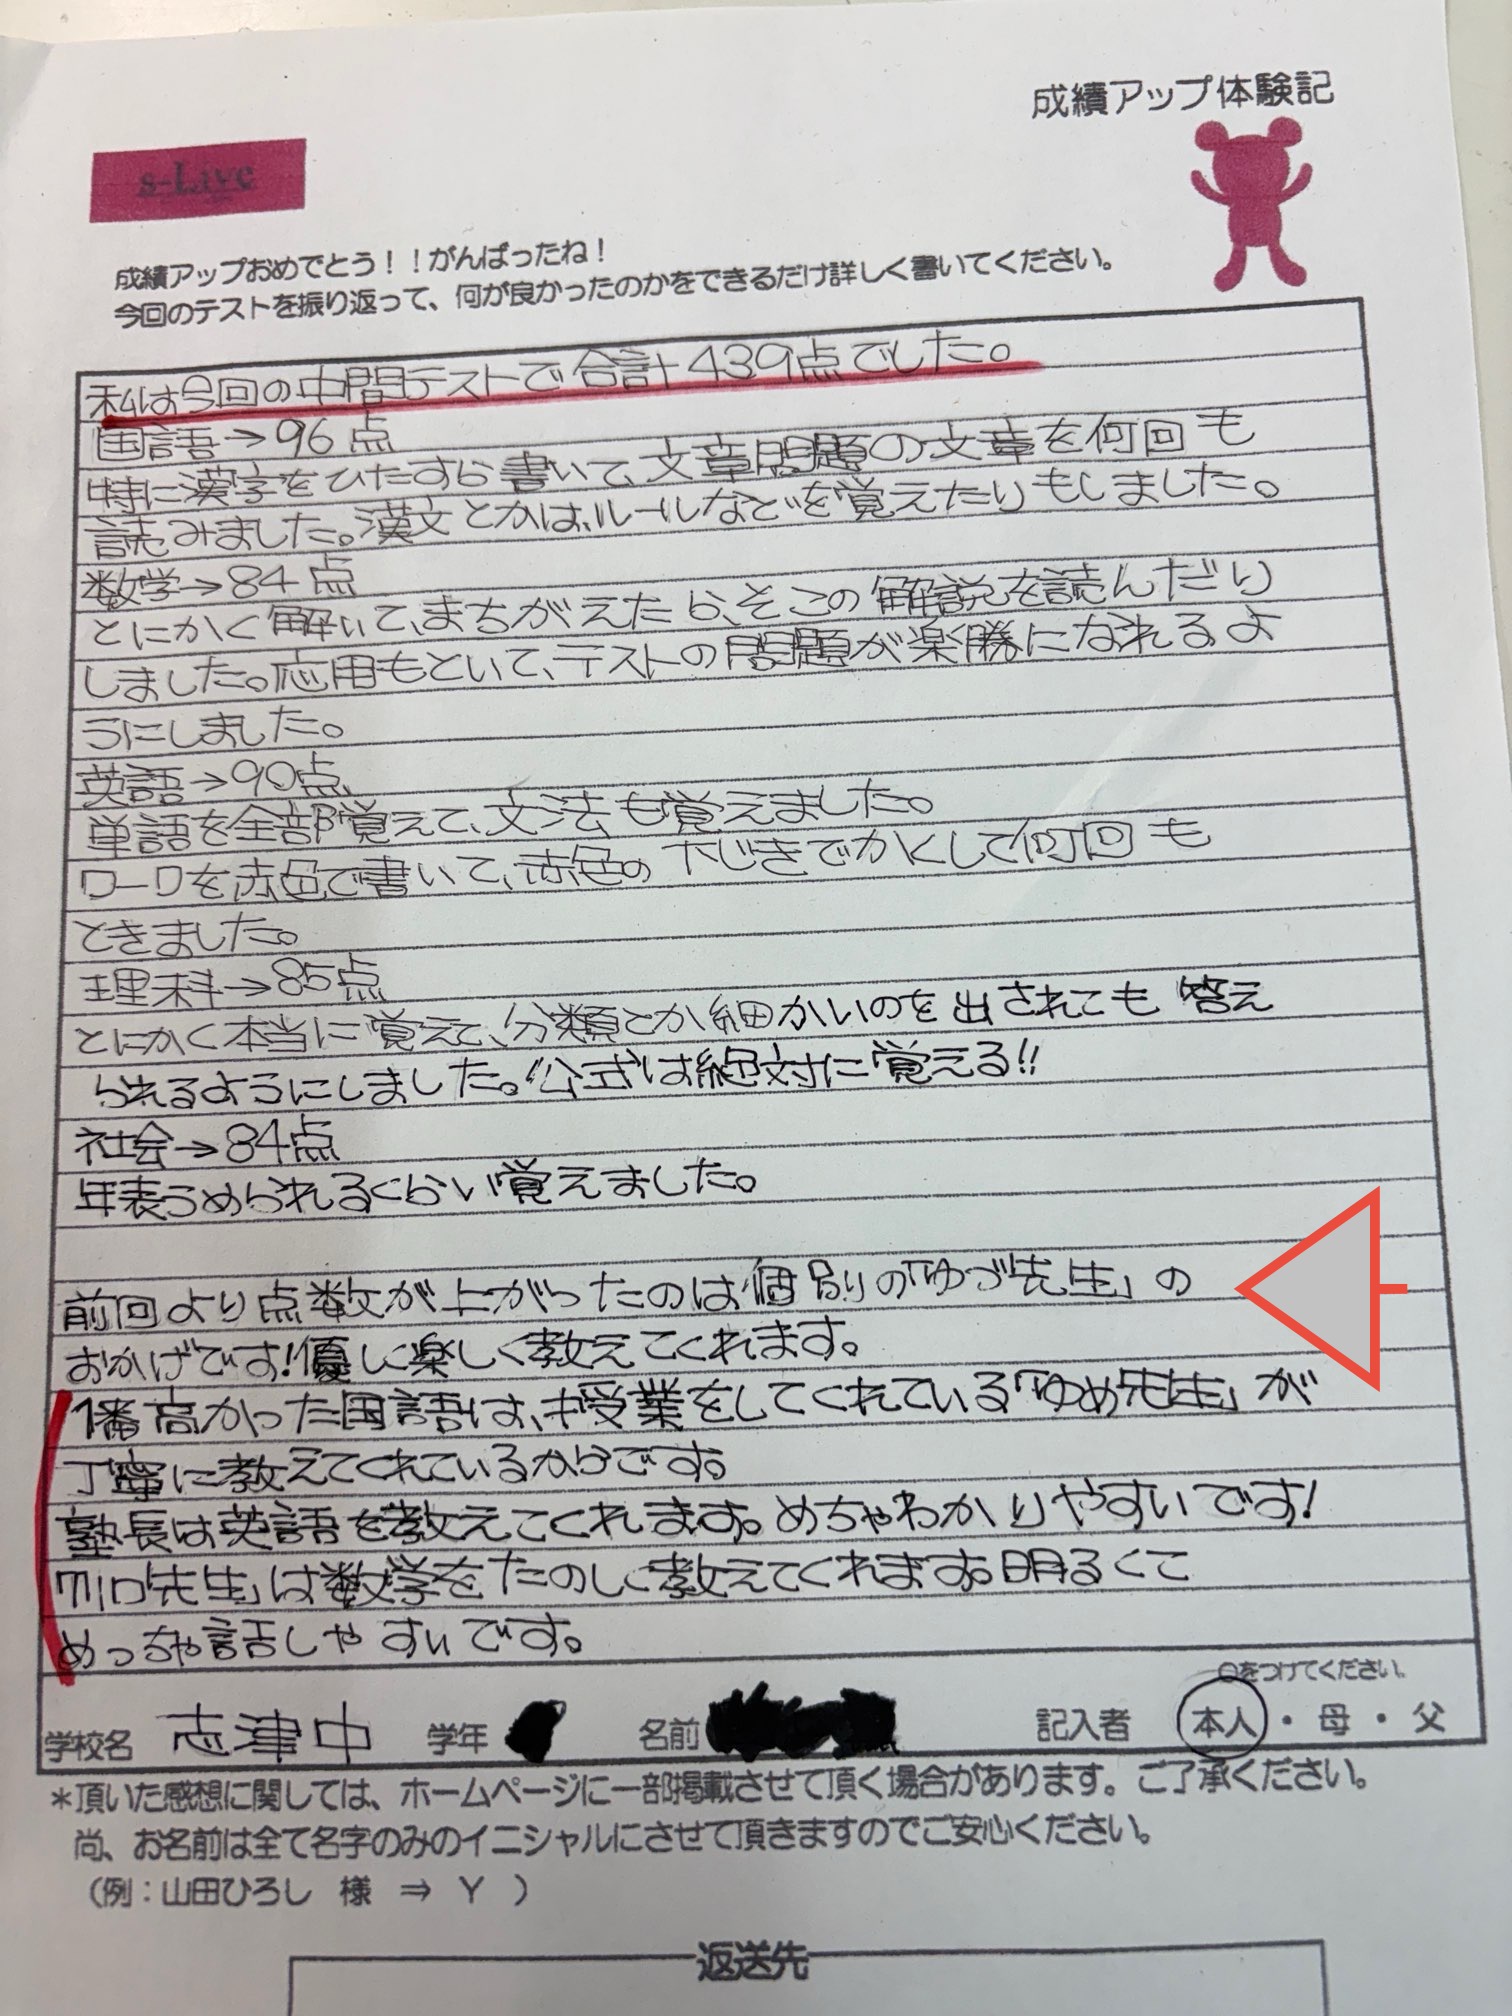 成績アップ体験記
s-Live
成績アップおめでとう！！がんばったね！
今回のテストを振り返って、何が良かったのかをできるだけ詳しく書いてください。
私は今回の中間テストで合計439点でした。
国語→96点
特に漢字をひたすら書いて、文章問題の文章を何回も
読みました。漢文とかは、ルールなどを覚えたりもしました。
数学→84点
とにかく解いて、まちがえたら、そこの解説を読んだり
しました。応用もといて、テストの問題が楽勝になれるよ
うにしました。
英語→90点
単語を全部覚えて、文法も覚えました。
ワークを赤色で書いて、赤色の下じきでかくして何回も
ときました。
理科→85点
とにかく本当に覚えて、分類とか細かいのを出されても答え
られるようにしました。公式は絶対に覚える!!
社会→84点
年表うめられるくらい覚えました。
前回より点数が上がったのは個別の「ゆづ先生」の
おかげです!優しく楽しく教えてくれます。
1番高かった国語は、授業をしてくれている「ゆめ先生」が
丁寧に教えてくれているからです。
塾長は英語を教えてくれます。めちゃわかりやすいです!
先生」は数学をたのしく教えてくれます。明るくて
めっちゃ話しやすいです。
○をつけてください。
学校名 志津中 学年 名前 記入者 本人・母・父
＊頂いた感想に関しては、ホームページに一部掲載させて頂く場合があります。ご了承ください。
尚、お名前は全て名字のみのイニシャルにさせて頂きますのでご安心ください。
（例：山田ひろし 様 ⇒ Y ）
返送先